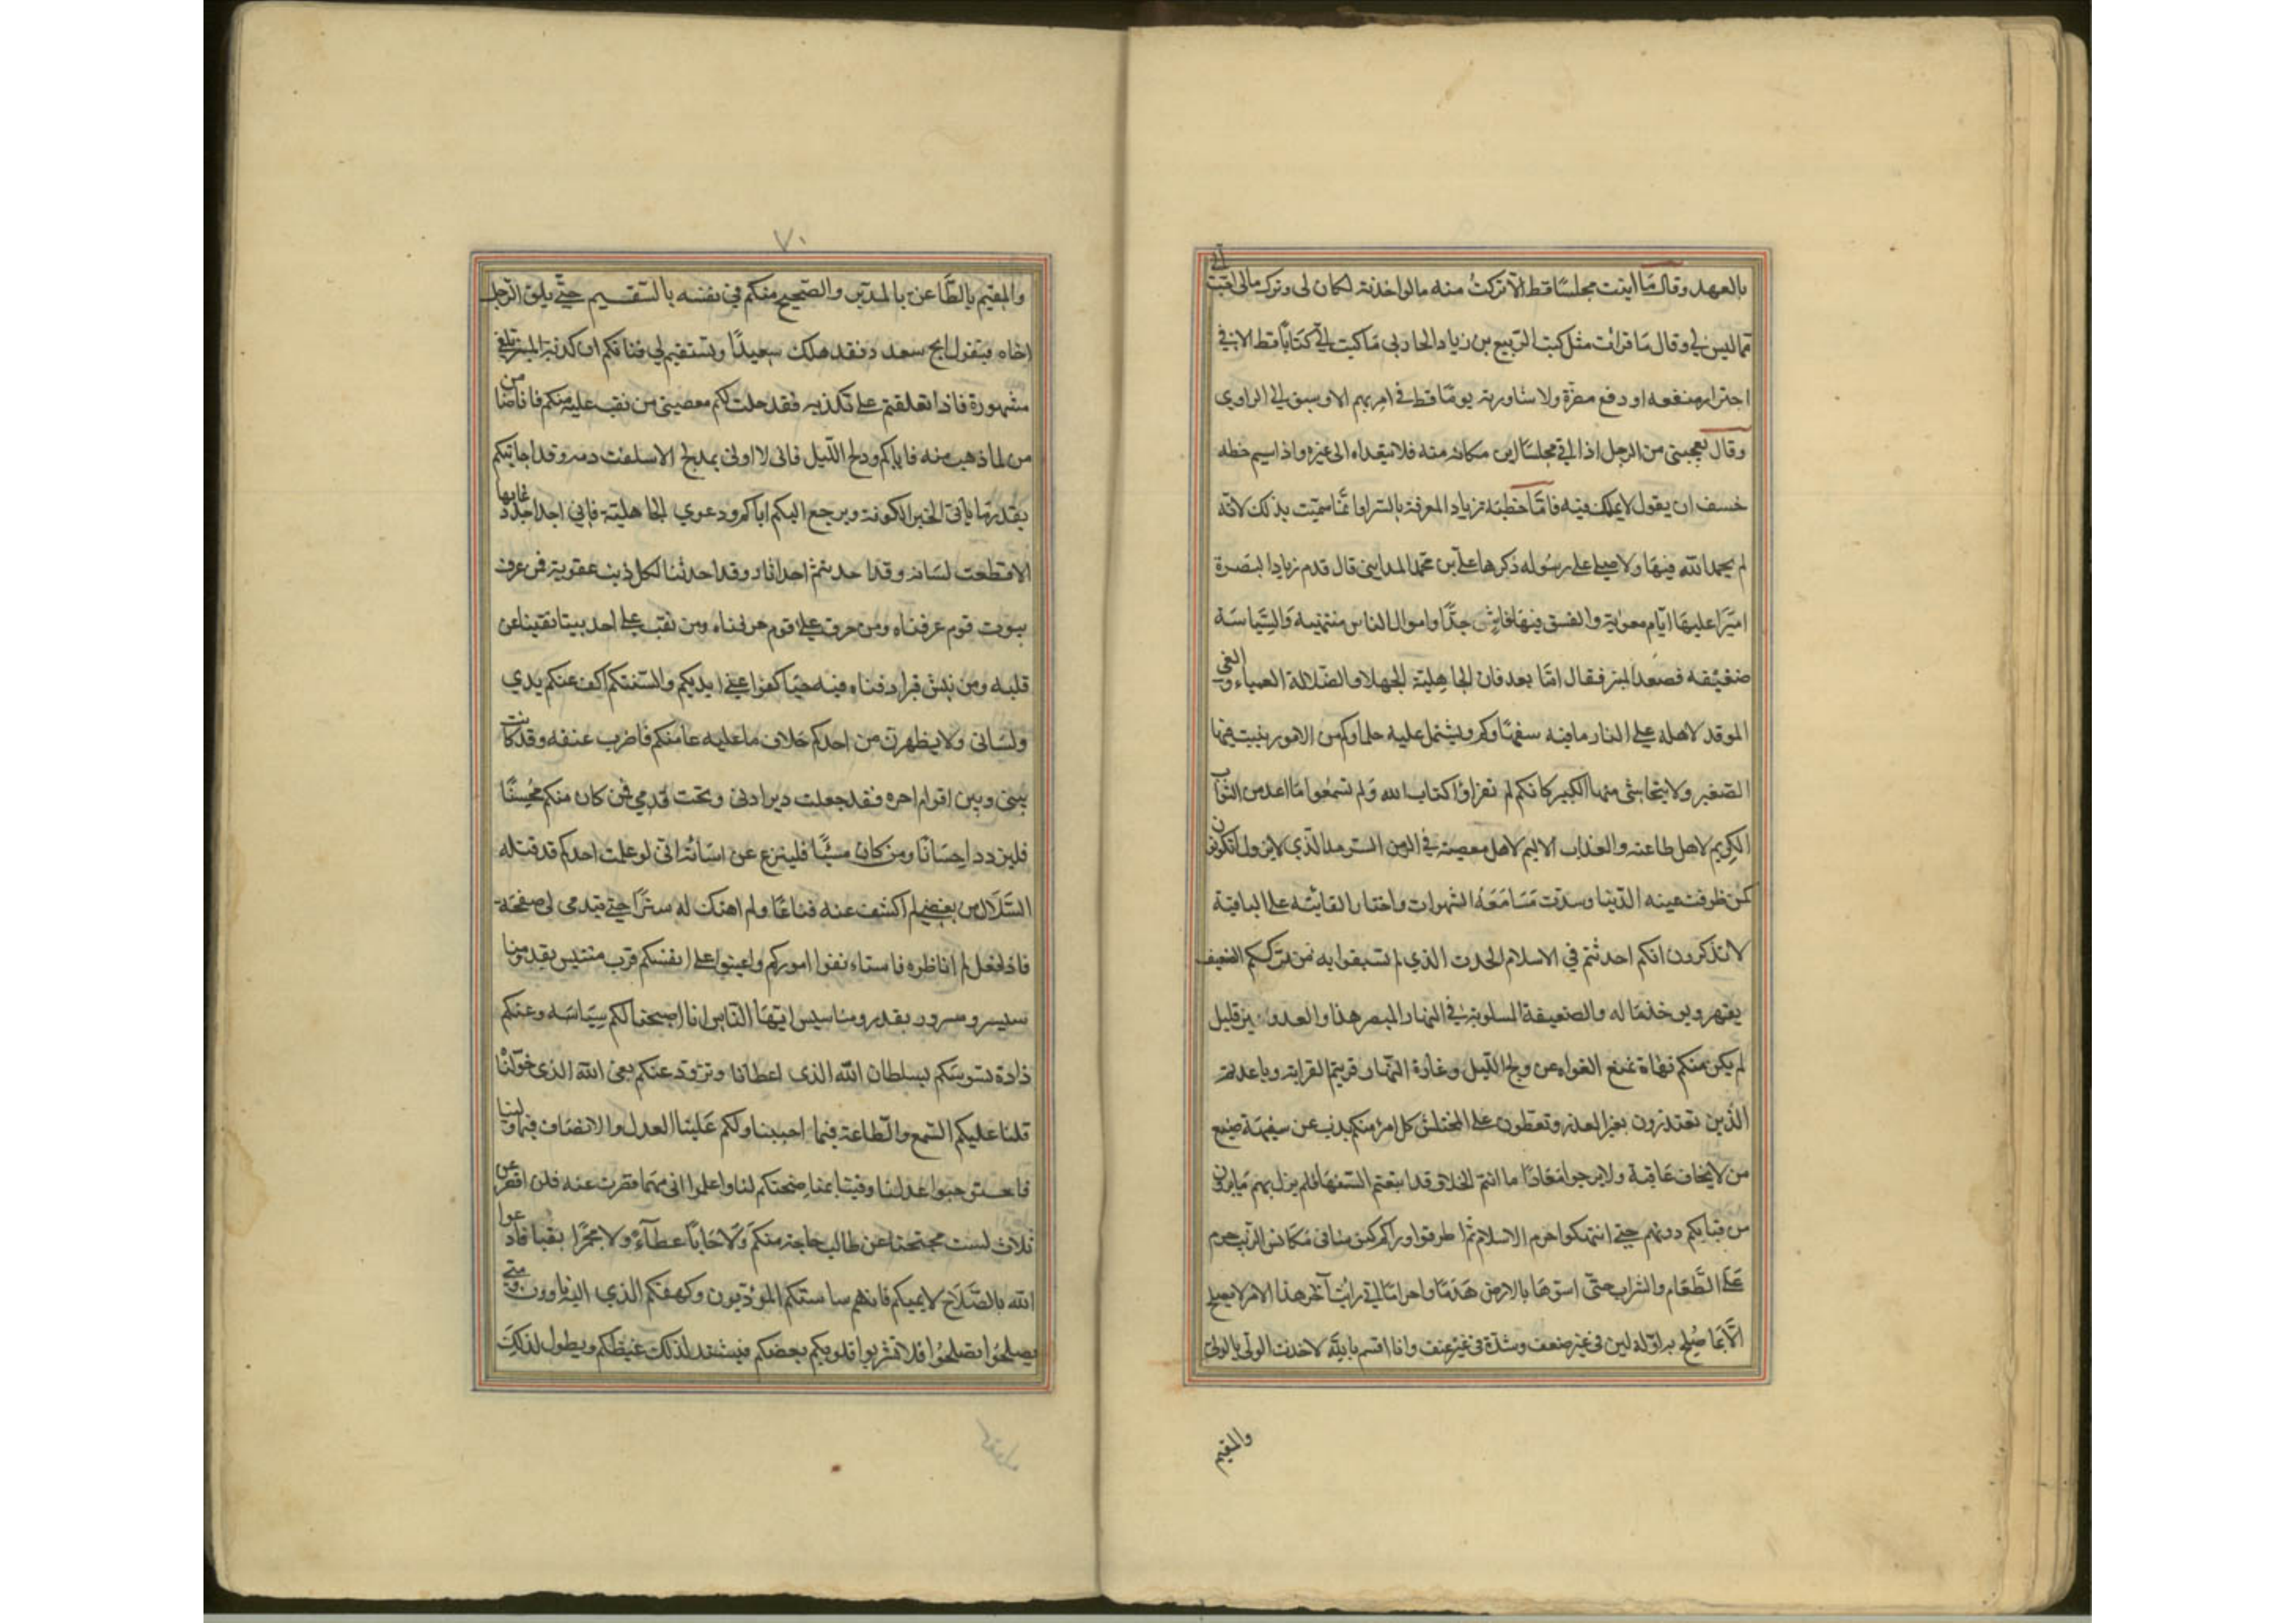 بالعهد وقال ما اتيت مجلسًا قط الّا تركتُ منه مالو اخذته لكان لى وترك مالى احبّ الىّ
مما ليس لي وقال مَا قرات مثل كتب الربيع بن زياد الحارثى مَا كتب اليّ كتابًا قط الا في
اجترار منفعه او دفع مضرّة ولا شاورته يومًا قط في امر مبهم الا وسبق الي الراي
وقال يعجبنى من الرجل اذا اتى مجلسًا اين مكانه منه فلا يتعداه الى غيره واذا سيم خطه
خسف ان يقول لا بملئ فيه فامّا خطبة زياد المعرفة بالبترا وانّما سمّيت بذلك لانّه
لم يحمد الله فيهَا ولا صلي علي رسُوله ذكرها علي بن محمد المدايني قال قدم زياد البَصرة
اميَرًا عليهَا ايّام معوٰية والفسق فيهَا فاشٍ جدًّا واموال الناس منتهبه والسّياسَه
ضعيفه فصعدَ المنبر فقال امّا بعد فان الجاهِليّة الجهلاء والضّلالة العمياء والغي
الموقد لاهله علي النار ما فيه سفهَاوكم ويشتمل عليه حلماوكم من الامور ينبت فيهَا
الصّغير ولا يتحاشى منهَا الكبير كانكم لم تقراوُا كتاب الله وَلم تسمعُوا مَا اعد من الثوَاب
الكريم لاهل طاعته والعذاب الاليم لاهل معصيته في الزمن السّرمد الّذي لا يزول اتكونُون
كمن ظرفت عينه الدّنيا وسدّت مَسَامَعَهُ الشهوات واختار الفانيه علي الباقية
لا تذكرون انكم احدثتم في الاسلام الحدث الذي لم تسبقوا به من ترككم الضعيف
يقهر ويوخذ مَا له والضعيفة المسلوبة في النهار المبصر هذا والعدد غير قليل
لم يكن منكم نهاة تمنع الغواه عن دلج اللّيل وغارة النّهار قربتم القرابة وباعدتم
الّذين تعتذرون بغير العذر وتعطون علي المختلس كل امرئ منكم يذب عن سفيهَه صنيع
من لا يخاف عَاقبة ولا يرجوا مَعَادًا ما انتم الحلماء قد اتبعتم السّفهَا فلم يزل بهم مَا يرون
من قيامكم دونهم حتي انتهكوا حرم الاسلام ثم اطرقوا وراكم كنوسًا في مكانس الرّيب حرم
عَليَّ الطّعَام والشراب حتّى اسوّيهَا بالارض هَدمًا واحراقا اني رايتُ آخر هذا الامر لا يصلح
الّا بمَا صُلح به اوّله لين فى غير ضعف وشدّة فى غير عنف وانا اقسم بالله لاخذن الولى بالولى
والمقيم
٧٠
والمقيم بالظّاعن بالمدبر والصّحيح منكم في نفسه بالسّقيم حتّي يلق الرّجل
اخاه فيقول انج سعد فقد هلك سعيدًا وتستقيم لي قناتكم ان كذبة المنبر تلفي
مشهورة فاذا تعلقتم علي بكذبه فقد حلت لكم معصيتى من نقب عليه منكم فانا ضامن
من لما ذهب منه فاياكم ودلج اللّيل فانى لا اوتى بمدلج الا سفكت دمه وقد اجلتكم
بقدر ما ياتى الخبر الكوفة ويرجع اليكم اياكم ودعوي الجاهليّة فانى لا اجد احدًا دعا بها
الا قطعت لسَانه وقد احدثتم احداثا وقد احدثنا لكل ذنب عقوبة فمن غرق
بيوت قوم غرقناه ومن حرق علي قوم حرقناه ومن نقب علي احد بيتا نقبنا عن
قلبه ومن نبش قبرا دفناه فيه حيّا كفوا عني ايديكم والسنتكم اكف عنكم يدي
ولسَانى ولا يظهرن من احدكم خلاف ما عليه عامتكم فاضرب عنقه وقد كانت
بينى وبين اقوام احن فقد جعلت دبر اذنى وتحت قدمي فمن كان منكم محُسِنًا
فليزدد احِسَانًا ومن كان مسيئًا فلينزع عن اسَائته انى لو علمت احدكم قد قتله
السّلال من بغضي لم اكشف عنه قناعًا ولم اهتك له سترًا حتّي يبدى لى صفحته
فاذا فعل لم اناظره فاستانفوا اموركم واعينوا علي انفسكم فرب مبتئس بقدومنا
سيسر ومسرور بقدومنا سيبتئس ايّهَا النّاس انا اصبحنا لكم سِيَاسَه وعنكم
ذادة نسوسَكم بسلطان الله الذى اعطانا ونزود عنكم بفئ الله الذى خوّلنْا
فلنا عليكم السّمع والطّاعة فيما احببنا ولكم عَلينَا العدل والانصَاف فيمَا ولينا
فاستوجبوا عدلنا وفيئنا بمناصحتكم لنا واعلموا انى مهما قصرت عنه فلن اقصر عن
ثلاث لست محتجبَا عن طالب حاجة منكَم وَلَا حَابسًا عطآءً ولا مجمّرًا بعثا فادعوا
الله بالصّلَاح لايمتكم فانهم ساستكم المؤدّبون وكهفكم الذي اليه تاوون ومتي
يصلحُوا تصلحُوا فلا تشربوا قلوبكم بغضكم فيشتد لذلك غيظكم ويطول لذلكَ